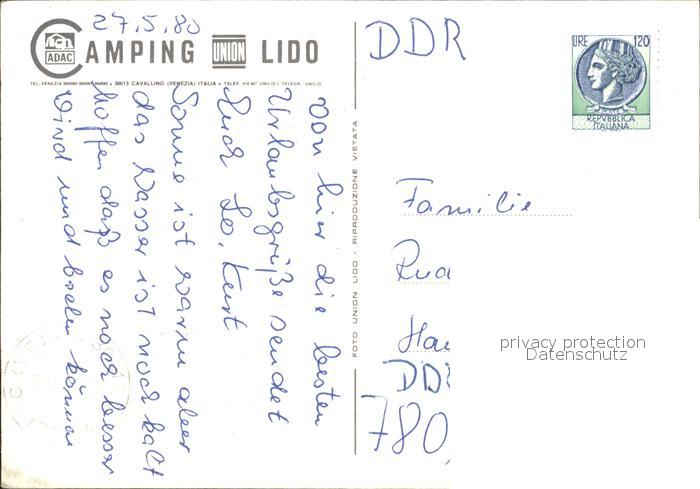 27.5.80
CAMPING UNION LIDO
ADAC
30013 CAVALLINO (VENEZIA) ITALIA
von hier die besten
Urlaubsgrüße sendet
Euch Lo, Kurt
Sonne ist warm aber
das Wasser ist noch kalt
hoffen daß es noch besser
wird und baden können
FOTO UNION LIDO - RIPRODUZIONE VIETATA
DDR
LIRE 120
REPVBBLICA
ITALIANA
Familie
Rud
Hau
DDR
780
privacy protection
Datenschutz